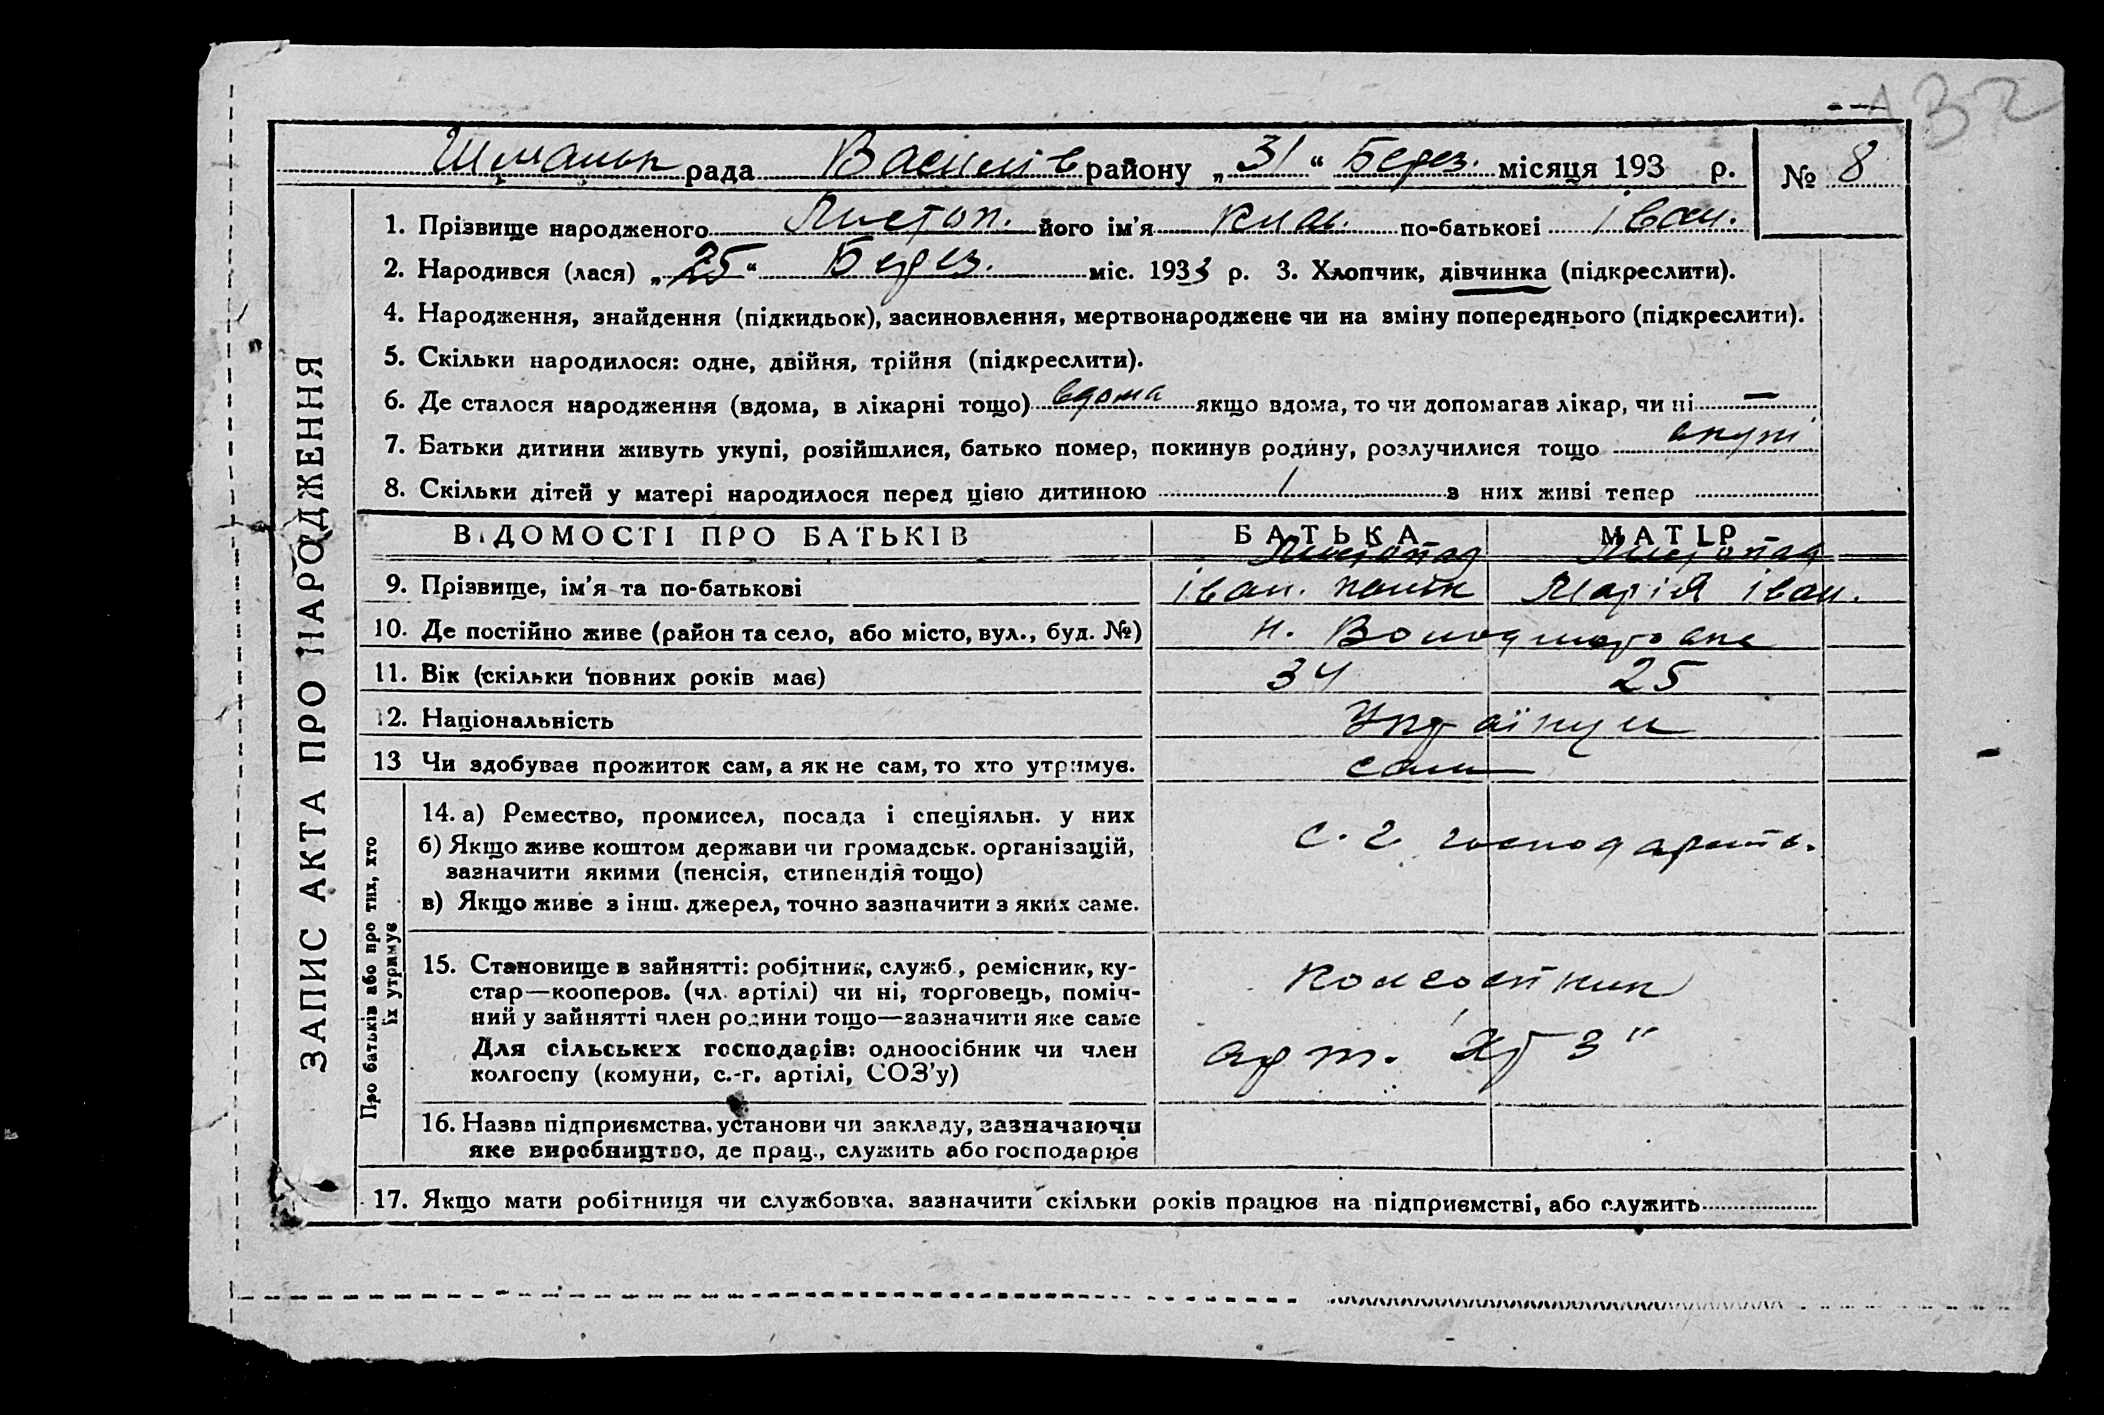 А 32
рада Василів району „ 31 “ Берез. місяця 193 р. № 8
ЗАПИС АКТА ПРО НАРОДЖЕННЯ
1. Прізвище народженого Листоп. його ім’я по-батькові Іван.
2. Народився (лася) „ 25 “ Берез. міс. 1933 р. 3. Хлопчик, дівчинка (підкреслити).
4. Народження, знайдення (підкидьок), засиновлення, мертвонароджене чи на зміну попереднього (підкреслити).
5. Скільки народилося: одне, двійня, трійня (підкреслити).
6. Де сталося народження (вдома, в лікарні тощо) вдома якщо вдома, то чи допомагав лікар, чи ні —
7. Батьки дитини живуть укупі, розійшлися, батько помер, покинув родину, розлучилися тощо вкупі
8. Скільки дітей у матері народилося перед цією дитиною 1 з них живі тепер
ВІДОМОСТІ ПРО БАТЬКІВ БАТЬКА МАТІР
Листопад Листопад
9. Прізвище, ім’я та по-батькові Іван. Марія Іван.
10. Де постійно живе (район та село, або місто, вул., буд. №) н.
11. Вік (скільки повних років має) 34 25
12. Національність Українци
13 Чи здобуває прожиток сам, а як не сам, то хто утримує. сам
Про батьків або про тих, хто
їх утримує
14. а) Ремество, промисел, посада і спеціяльн. у них
б) Якщо живе коштом держави чи громадськ. організацій, с. г. господарств.
зазначити якими (пенсія, стипендія тощо)
в) Якщо живе з інш. джерел, точно зазначити з яких саме.
15. Становище в зайнятті: робітник, служб., ремісник, ку-
стар—кооперов. (чл. артілі) чи ні, торговець, поміч- колгоспник
ний у зайнятті член родини тощо—зазначити яке саме
Для сільських господарів: одноосібник чи член арт.
колгоспу (комуни, с.-г. артілі, СОЗ’у)
16. Назва підприємства, установи чи закладу, зазначаючи
яке виробництво, де прац., служить або господарює
17. Якщо мати робітниця чи службовка, зазначити скільки років працює на підприємстві, або служить